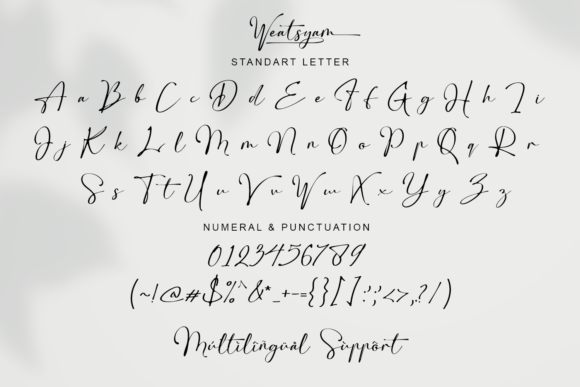 Weatsyam
STANDART LETTER
A a B b C c D d E e F f G g H h I i
J j K k L l M m N n O o P p Q q R r
S s T t U u V v W w X x Y y Z z
NUMERAL & PUNCTUATION
0123456789
(~!@#$%^&*_+-={}[]:;<>,?/)
Multilingual Support